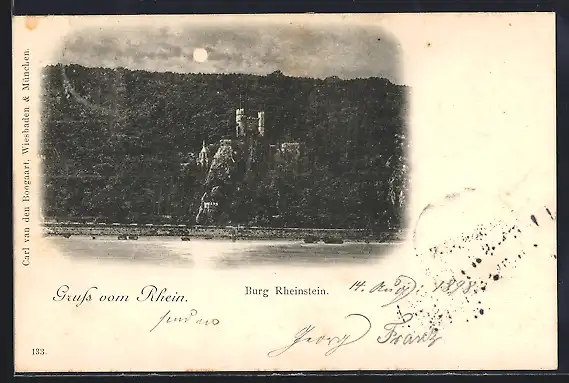 Carl van den Boogaart, Wiesbaden & München.
Gruß vom Rhein.
Burg Rheinstein.
14. Aug. 1898.
Georg Frank
133.